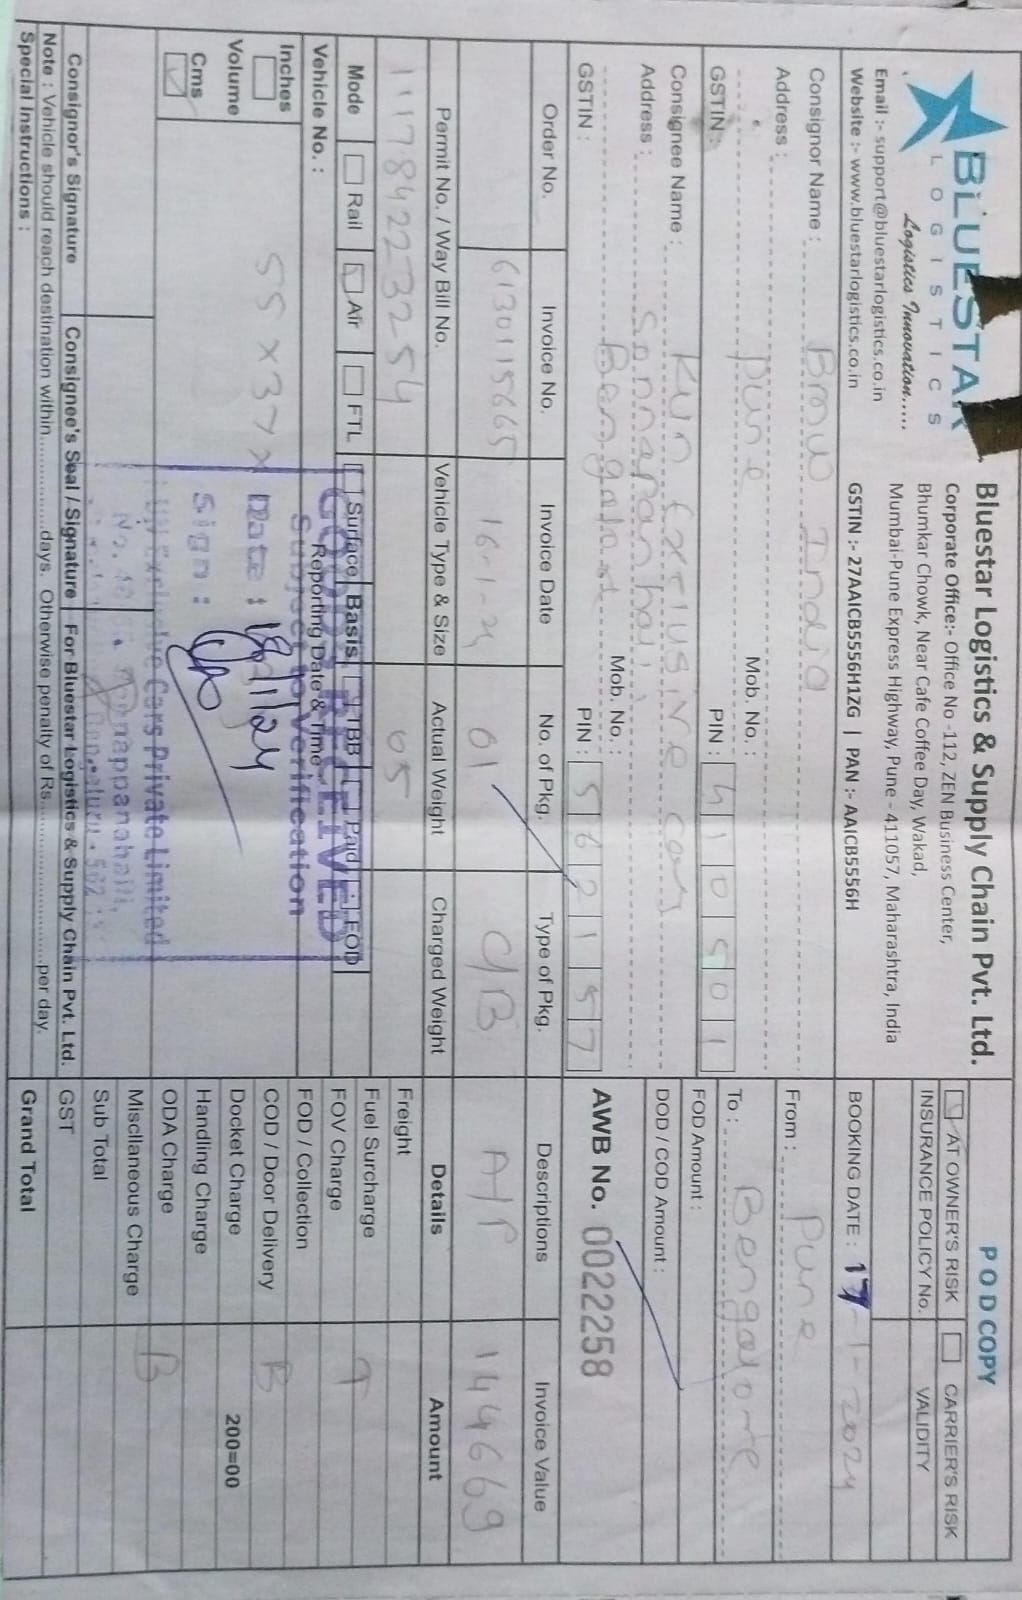 BLUESTAR
LOGISTICS
Logistics Innovation.....
Email :- support@bluestarlogistics.co.in
Website :- www.bluestarlogistics.co.in
Bluestar Logistics & Supply Chain Pvt. Ltd.
Corporate Office:- Office No -112, ZEN Business Center,
Bhumkar Chowk, Near Cafe Coffee Day, Wakad,
Mumbai-Pune Express Highway, Pune - 411057, Maharashtra, India
GSTIN :- 27AAICB5556H1ZG | PAN :- AAICB5556H
POD COPY
AT OWNER'S RISK CARRIER'S RISK
INSURANCE POLICY No. VALIDITY
BOOKING DATE : 17-1-2024
Consignor Name : BMW India
Address :
Pune Mob. No. :
GSTIN : PIN : 410501
From : Pune
To : Bengalore
FOD Amount :
DOD / COD Amount :
AWB No. 0022258
Consignee Name : Kun Exclusive cars
Address : Sonnapanhali,
Bengalore Mob. No. :
GSTIN : PIN : 562157
Order No. Invoice No. Invoice Date No. of Pkg. Type of Pkg. Descriptions Invoice Value
6130115665 16-1-24 01 C/B A/P 144669
Permit No. / Way Bill No. Vehicle Type & Size Actual Weight Charged Weight Details Amount
111784223254 05
Mode Rail Air FTL Surface Basis TBB Paid FOD
Vehicle No. : Reporting Date & Time
Inches
Volume
Cms
55 x 37 x
GOODS RECEIVED
Subject to Verification
Date : 18/1/24
Sign :
Exclusive Cars Private Limited
Bengaluru - 562
Freight
Fuel Surcharge T
FOV Charge
FOD / Collection
COD / Door Delivery B
Docket Charge 200=00
Handling Charge
ODA Charge B
Miscllaneous Charge
Sub Total
GST
Grand Total
Consignor's Signature Consignee's Seal / Signature For Bluestar Logistics & Supply Chain Pvt. Ltd.
Note : Vehicle should reach destination within..................days. Otherwise penalty of Rs..............................per day.
Special Instructions :